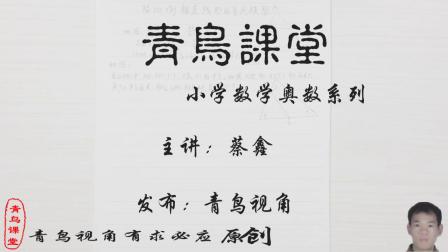 青鳥課堂
小学数学奥数系列
主讲：蔡鑫
发布：青鸟视角
青鸟课堂
青鸟视角有求必应 原创